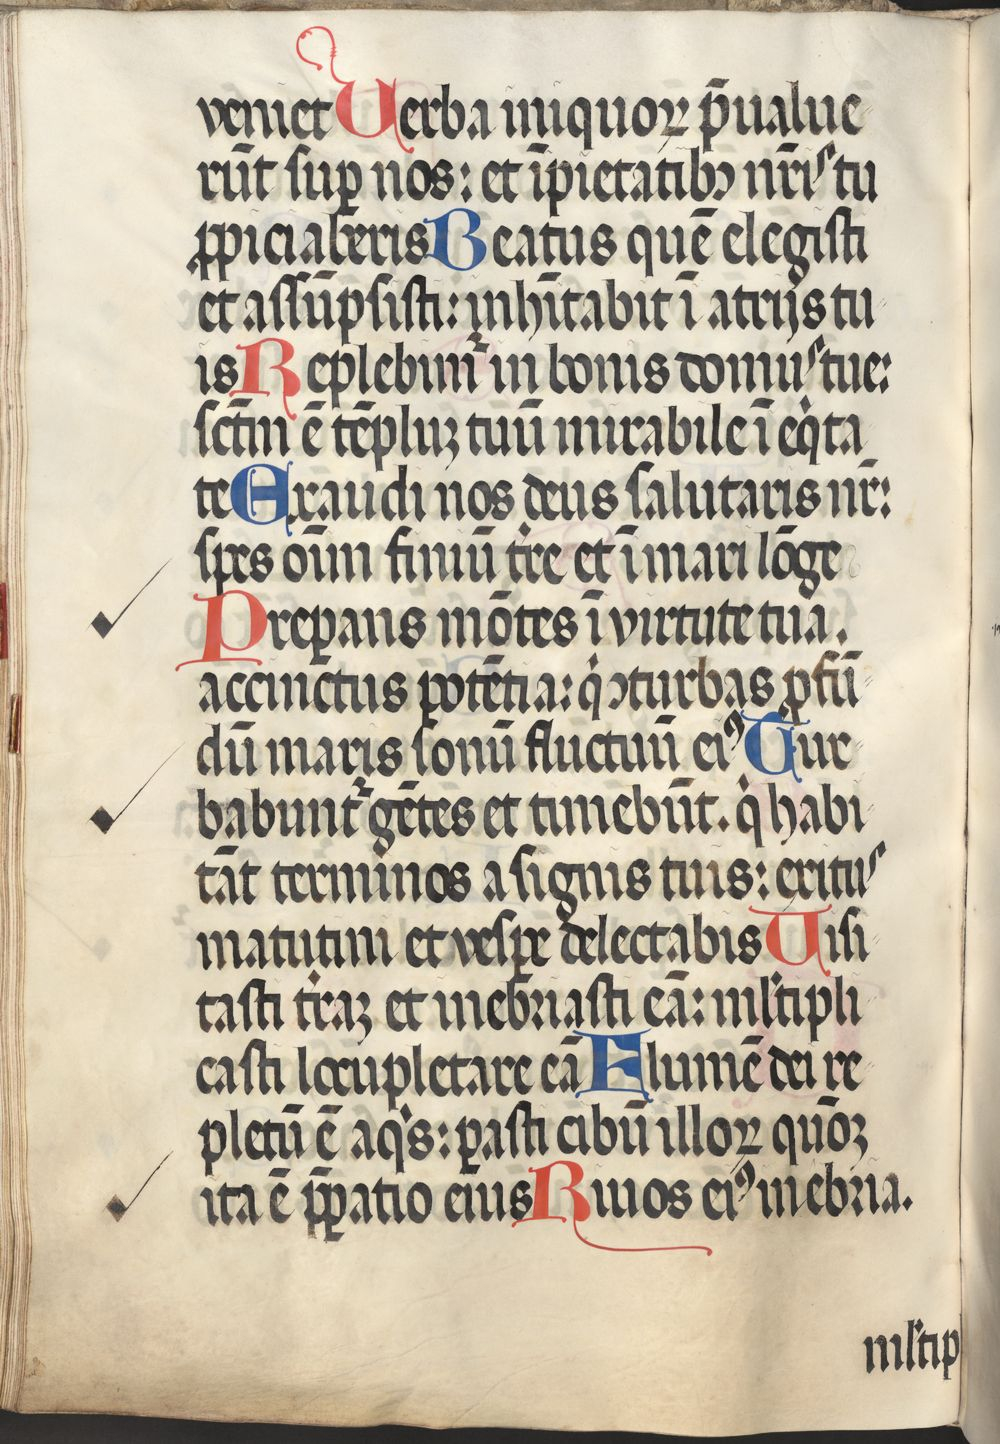 veniet Uerba iniquoꝝ p̄ualue
rūt suꝑ nos: et īpietatibꝫ nr̄is tu
ꝓpiciaberis Beatus quē elegisti
et assūpsisti: inhītabit ī atrijs tu
is Replebimʳ in bonis domus tue:
sctm̄ ē tēpluꝫ tuū mirabile ī eqͥta
te Exaudi nos deus salutaris nr̄:
spes oīm finiū tr̄re et ī mari lōge
Preꝑans mōtes ī virtute tua.
accinctus potētia: qͥ ꝯturbas ꝓfū
dū maris sonū fluctuū eiꝰ Tur
babuntʳ gētes et timebūt. qͥ habi
tāt terminos a signis tuis: exitus
matutini et vesꝑe delectabis Uisi
tasti tr̄raꝫ et inebriasti eā: mlͣtipli
casti locupletare eā Flumē dei re
pletū ē aqͥs: ꝑasti cibū illoꝝ qm̄ꝫ
ita ē p̄ꝑatio eius Riuos eiꝰ inebria.
mlͣtip